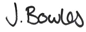 J. Bowles